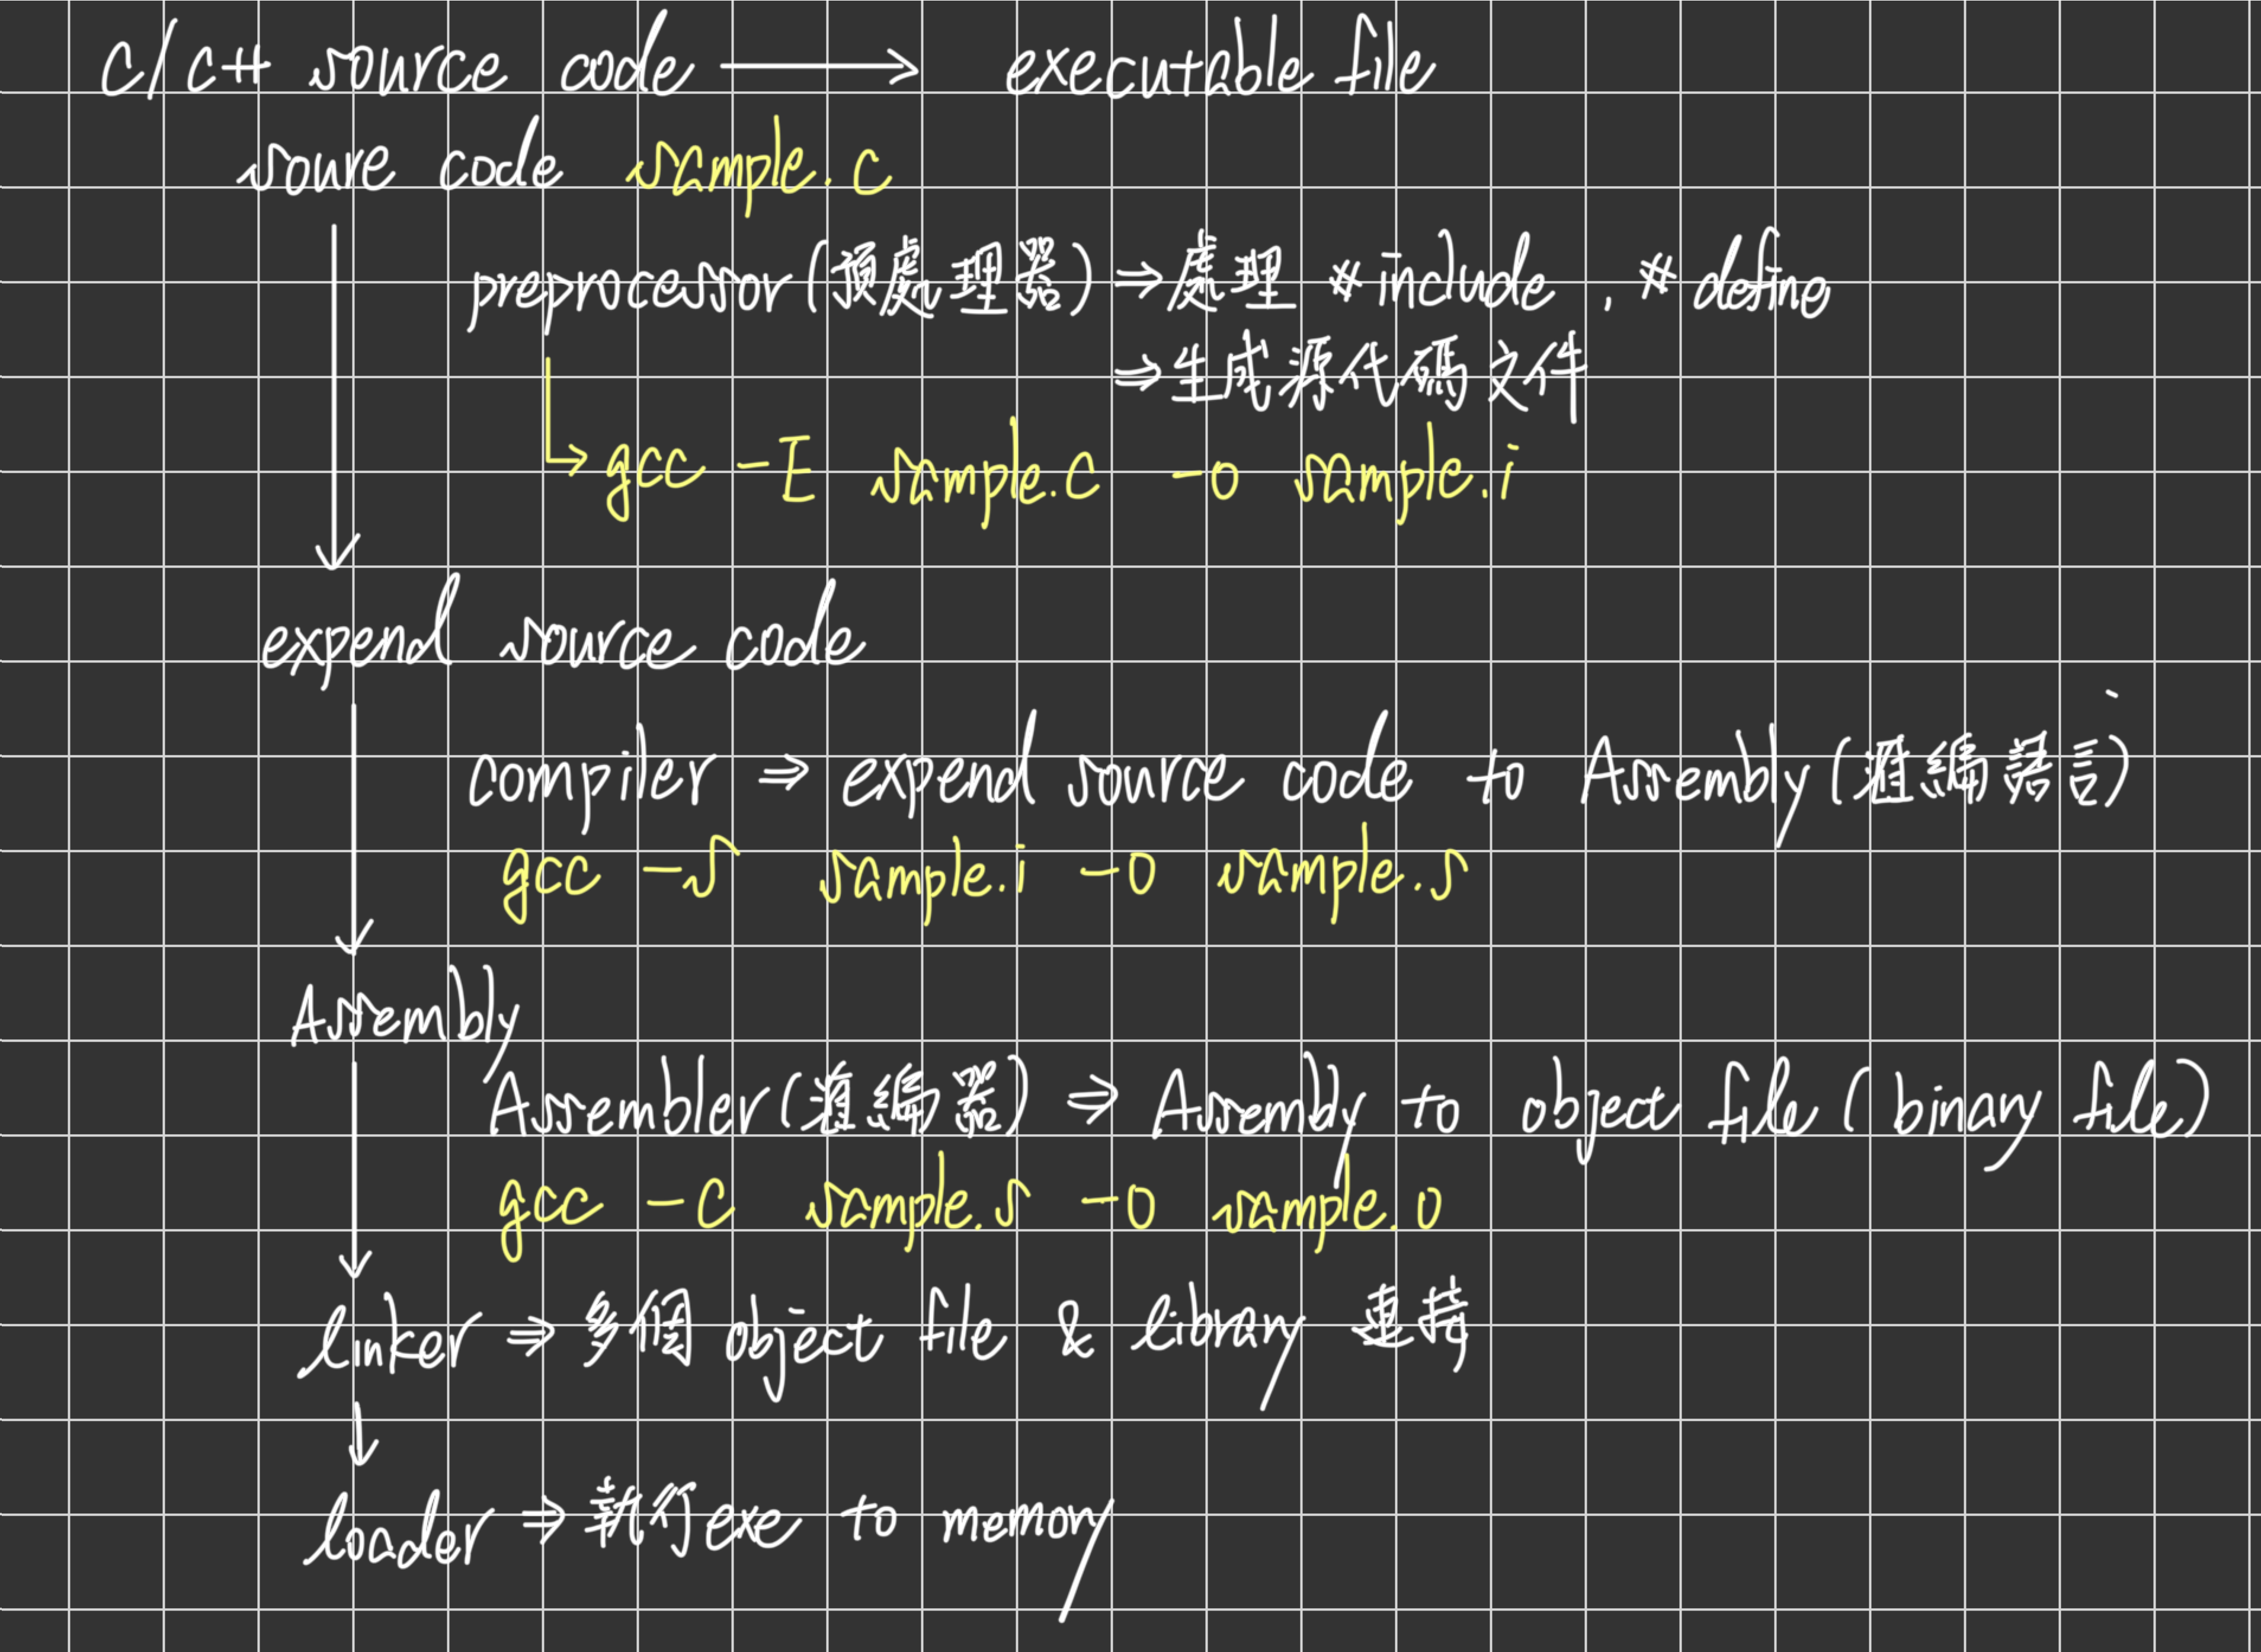 C/C++ source code → executable file
soure code sample.c
preprocessor(預處理器) ⇒ 處理 #include , #define
⇒ 生成源代碼文件
↳ gcc -E sample.c -o sample.i
expend source code
compiler ⇒ expend source code to Assembly(匯編語言)
gcc -S sample.i -o sample.s
Assembly
Assembler(匯編器) ⇒ Assembly to object file (binary file)
gcc -c sample.s -o sample.o
linker ⇒ 多個 object file & library 連接
loader ⇒ 執行exe to memory